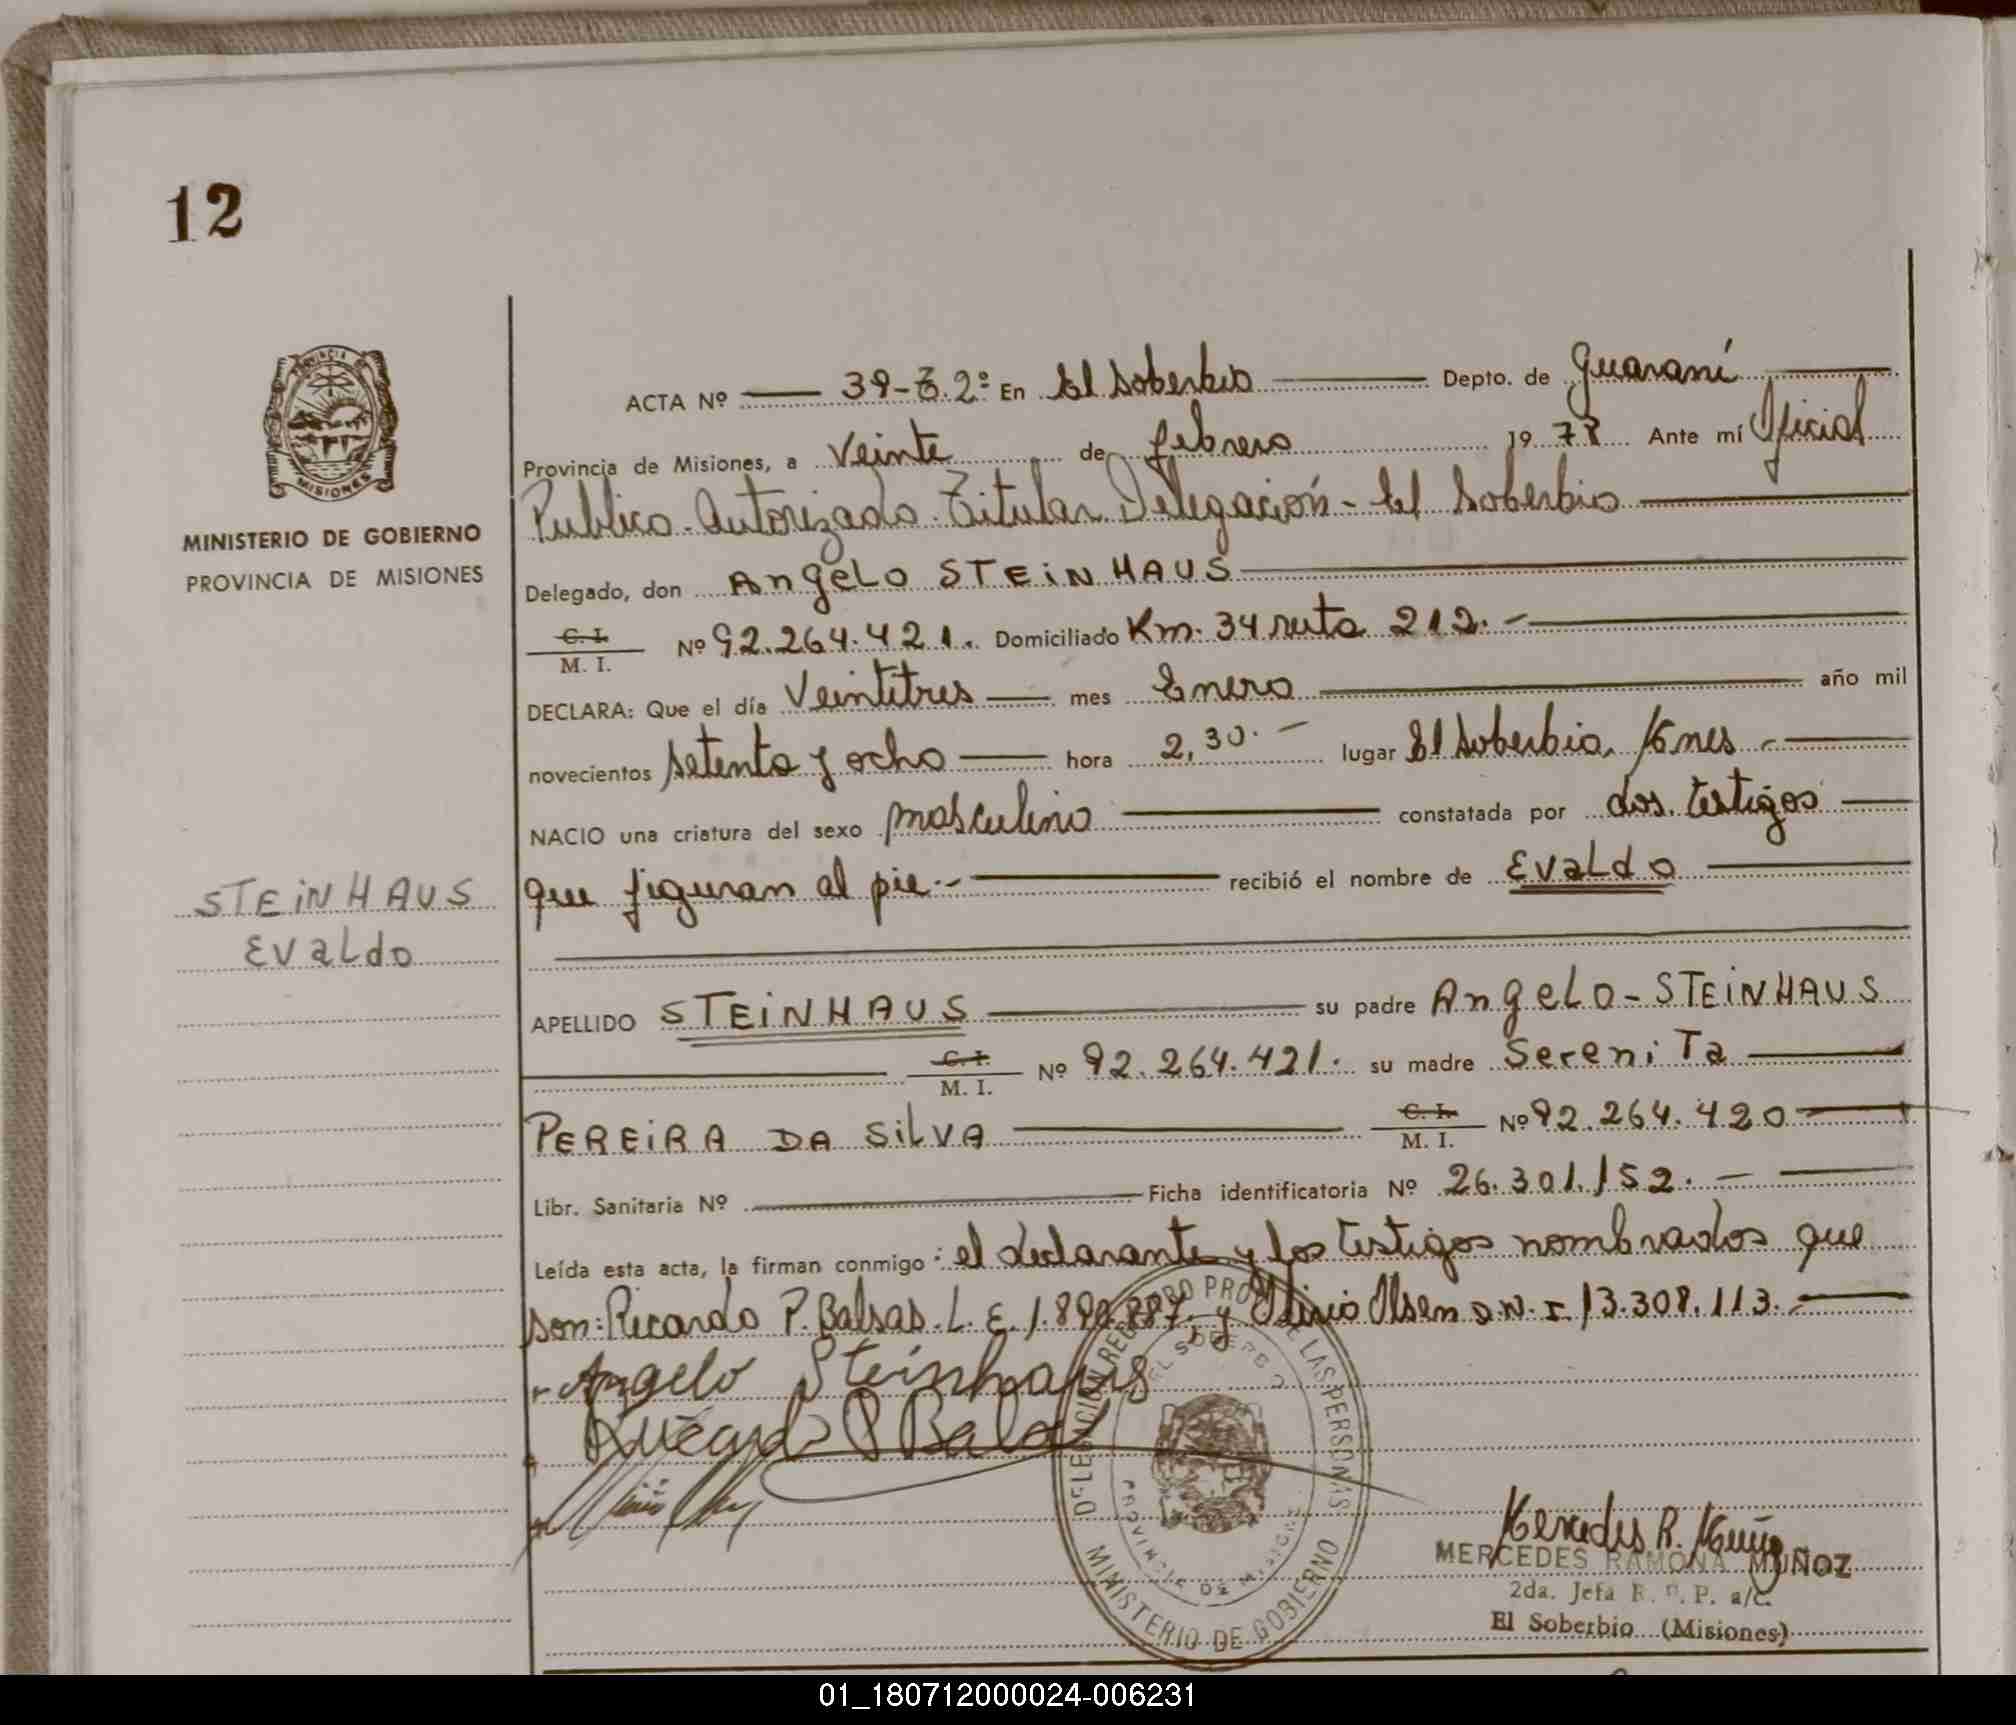 12
PROVINCIA DE
MISIONES
MINISTERIO DE GOBIERNO
PROVINCIA DE MISIONES
STEiNHAUS
Evaldo
ACTA Nº 39-T.2º En El Soberbio Depto. de Guaraní
Provincia de Misiones, a Veinte de febrero 19 78 Ante mí Oficial
Publico Autorizado Titular Delegación - El Soberbio
Delegado, don Angelo STEiNHAUS
C. I. M. I. Nº 92.264.421. Domiciliado Km. 34 ruta 212.-
DECLARA: Que el día Veintitres mes Enero año mil
novecientos setenta y ocho hora 2,30.- lugar El Soberbio, Mnes
NACIO una criatura del sexo masculino constatada por dos testigos
que figuran al pie.- recibió el nombre de Evaldo
APELLIDO STEiNHAUS su padre Angelo-STEiNHAUS
C. I. M. I. Nº 92.264.421. su madre SereniTa
PEREiRA DA SiLVA C. I. M. I. Nº 92.264.420
Libr. Sanitaria Nº Ficha identificatoria Nº 26.301.152.-
Leída esta acta, la firman conmigo: el declarante y los testigos nombrados que
son: Ricardo P. Balsas. L. E. 1.890.887. y Olsen D.N.I. 13.308.113.-
Angelo Steinhaus
Ricardo P Balsas
DELEGACION REGISTRO PROV. DE LAS PERSONAS
EL SOBERBIO
PROVINCIA DE MISIONES
MINISTERIO DE GOBIERNO
Mercedes R. Muñoz
MERCEDES RAMONA MUÑOZ
2da. Jefa R. P. P. a/c.
El Soberbio (Misiones)
01_180712000024-006231